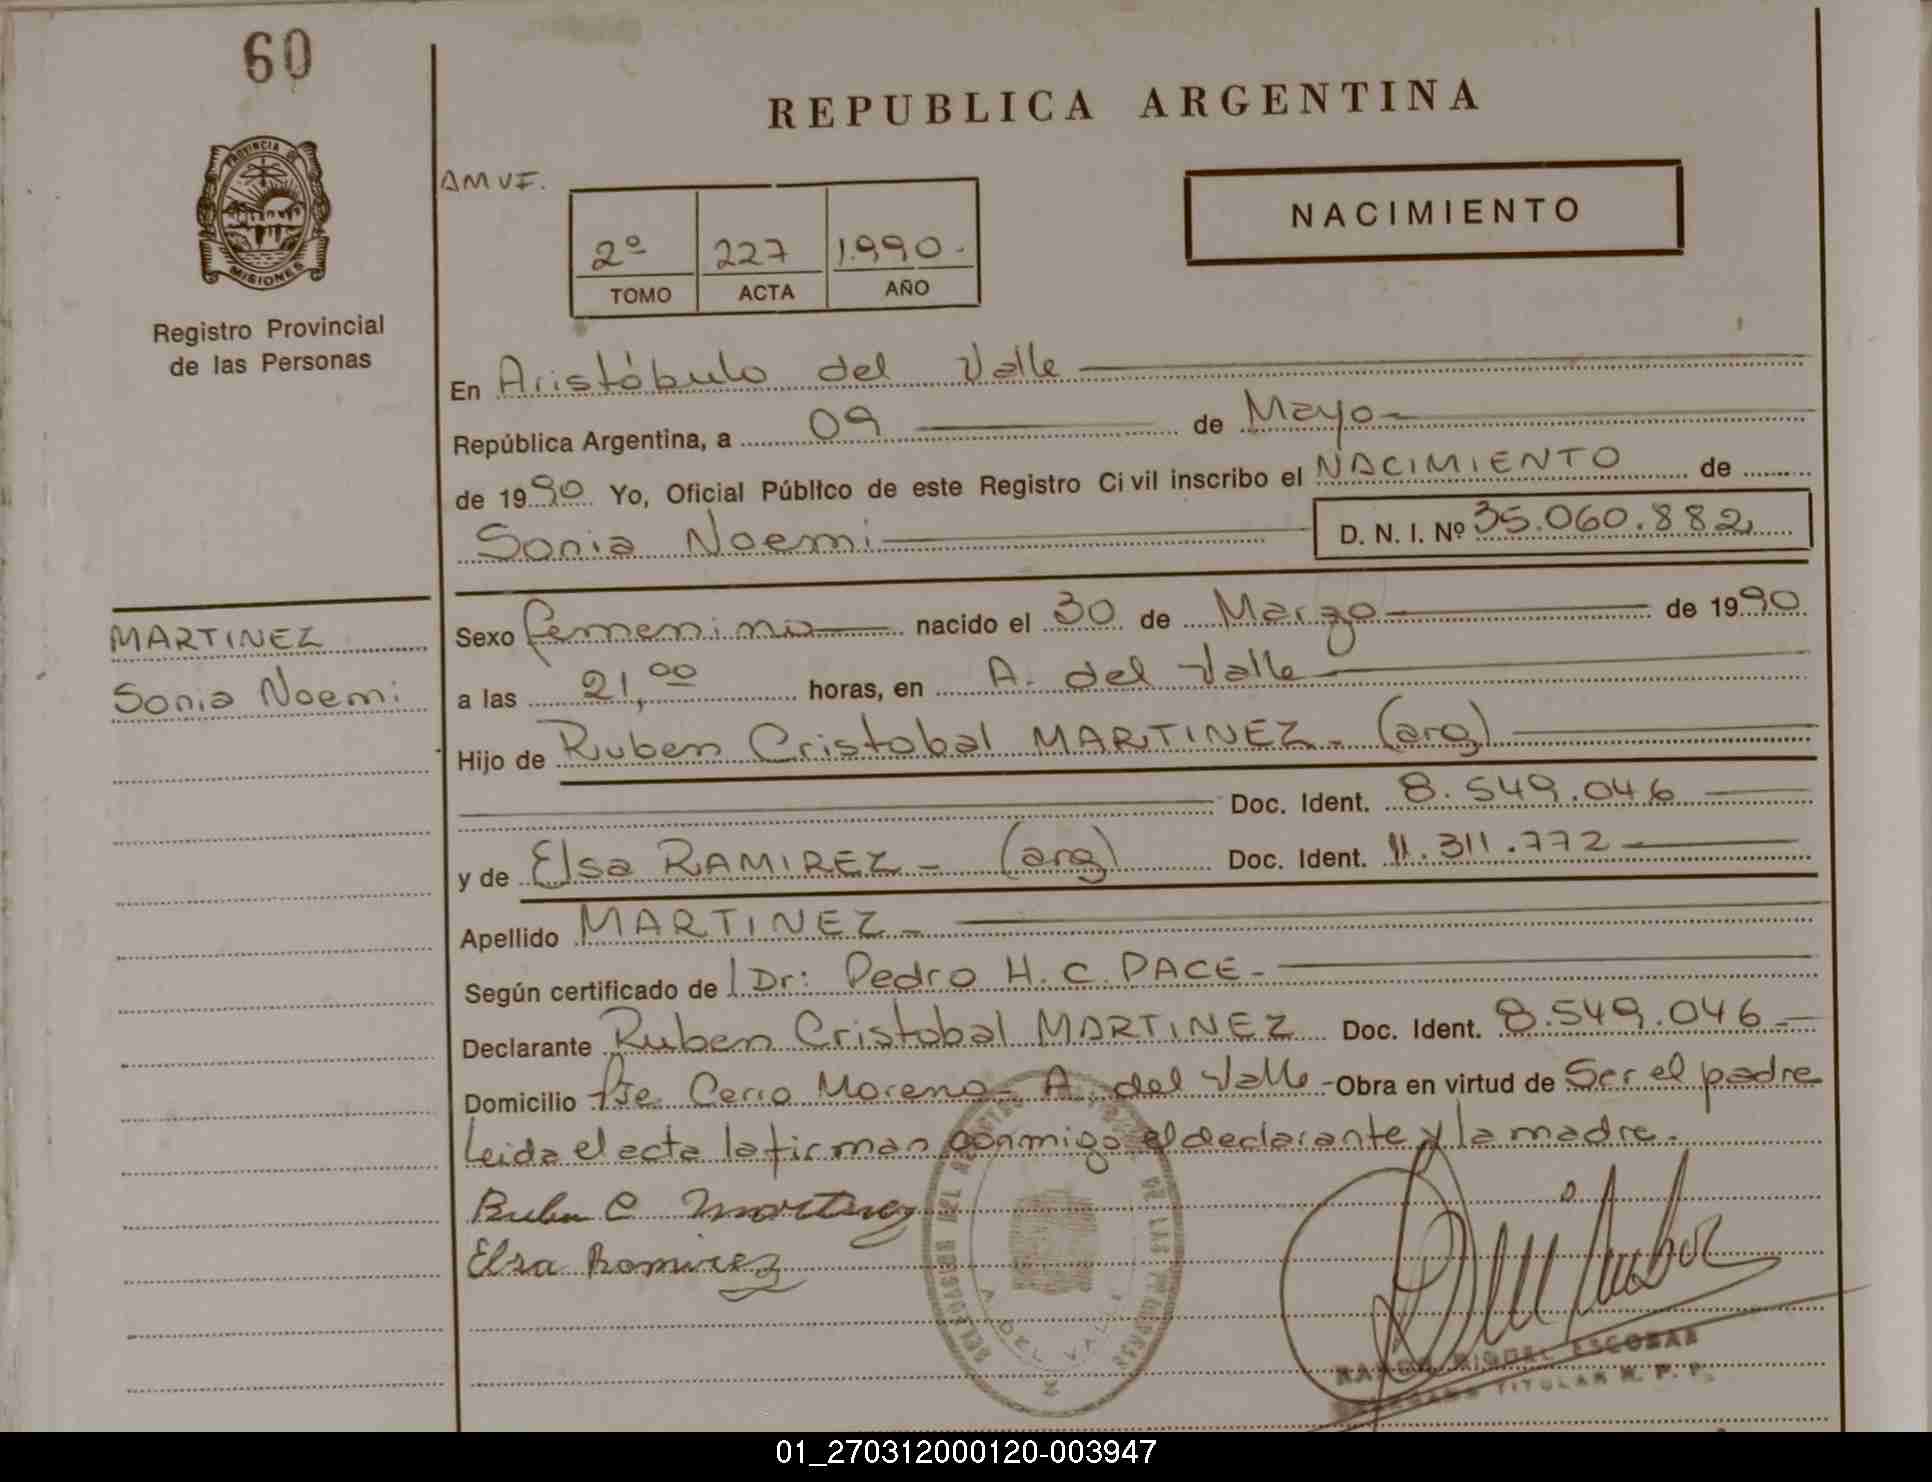 60
REPUBLICA ARGENTINA
PROVINCIA DE
MISIONES
Registro Provincial
de las Personas
AMVF.
NACIMIENTO
2º 227 1.990.-
TOMO ACTA AÑO
En Aristóbulo del Valle
República Argentina, a 09 de Mayo
de 1990 Yo, Oficial Público de este Registro Civil inscribo el NACIMIENTO de
Sonia Noemi D. N. I. Nº 35.060.882
MARTINEZ
Sonia Noemi
Sexo femenino nacido el 30 de Marzo de 1990
a las 21,00 horas, en A. del Valle
Hijo de Ruben Cristobal MARTINEZ - (arg)
Doc. Ident. 8.549.046
y de Elsa RAMIREZ - (arg) Doc. Ident. 11.311.772
Apellido MARTINEZ -
Según certificado de Dr: Pedro H. C. PACE -
Declarante Ruben Cristobal MARTINEZ Doc. Ident. 8.549.046 -
Domicilio Pje. Cerro Moreno - A. del Valle - Obra en virtud de Ser el padre
Leida el acta la firman conmigo el declarante y la madre.-
Ruben C Martinez
Elsa Ramirez
DE LAS PERSONAS
A. DEL VALLE
MIGUEL ESCOBAR
TITULAR R. P. P.
01_270312000120-003947